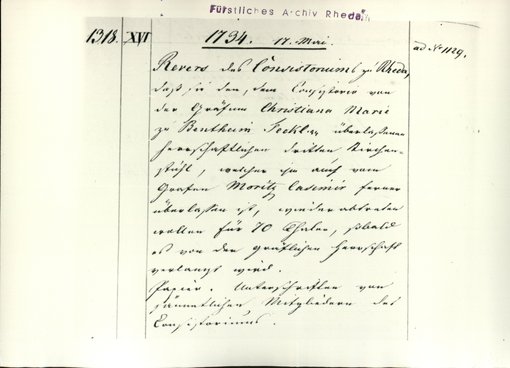 Fürstliches Archiv Rheda
1318. XVI 1734. 17. Mai. ad Nr 1129.
Revers des Consistoriums zu Rheda,
daß sie den, dem Consistorio von
der Gräfin Christiana Marie
zu Bentheim Teckl. überlassenen
herrschaftlichen dritten Kirchen-
stuhl, welcher ihm auch vom
Grafen Moritz Casimir ferner
überlassen ist, wieder abtreten
wollen für 70 Thaler, sobald
es von der gräflichen Herrschaft
verlangt wird.
Papier. Unterschriften von
sämmtlichen Mitgliedern des
Consistoriums.